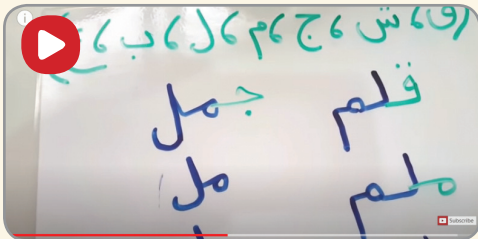 (ق، ش، ج، م، ل، ب،
قلم جمل
ملم مل
Subscribe